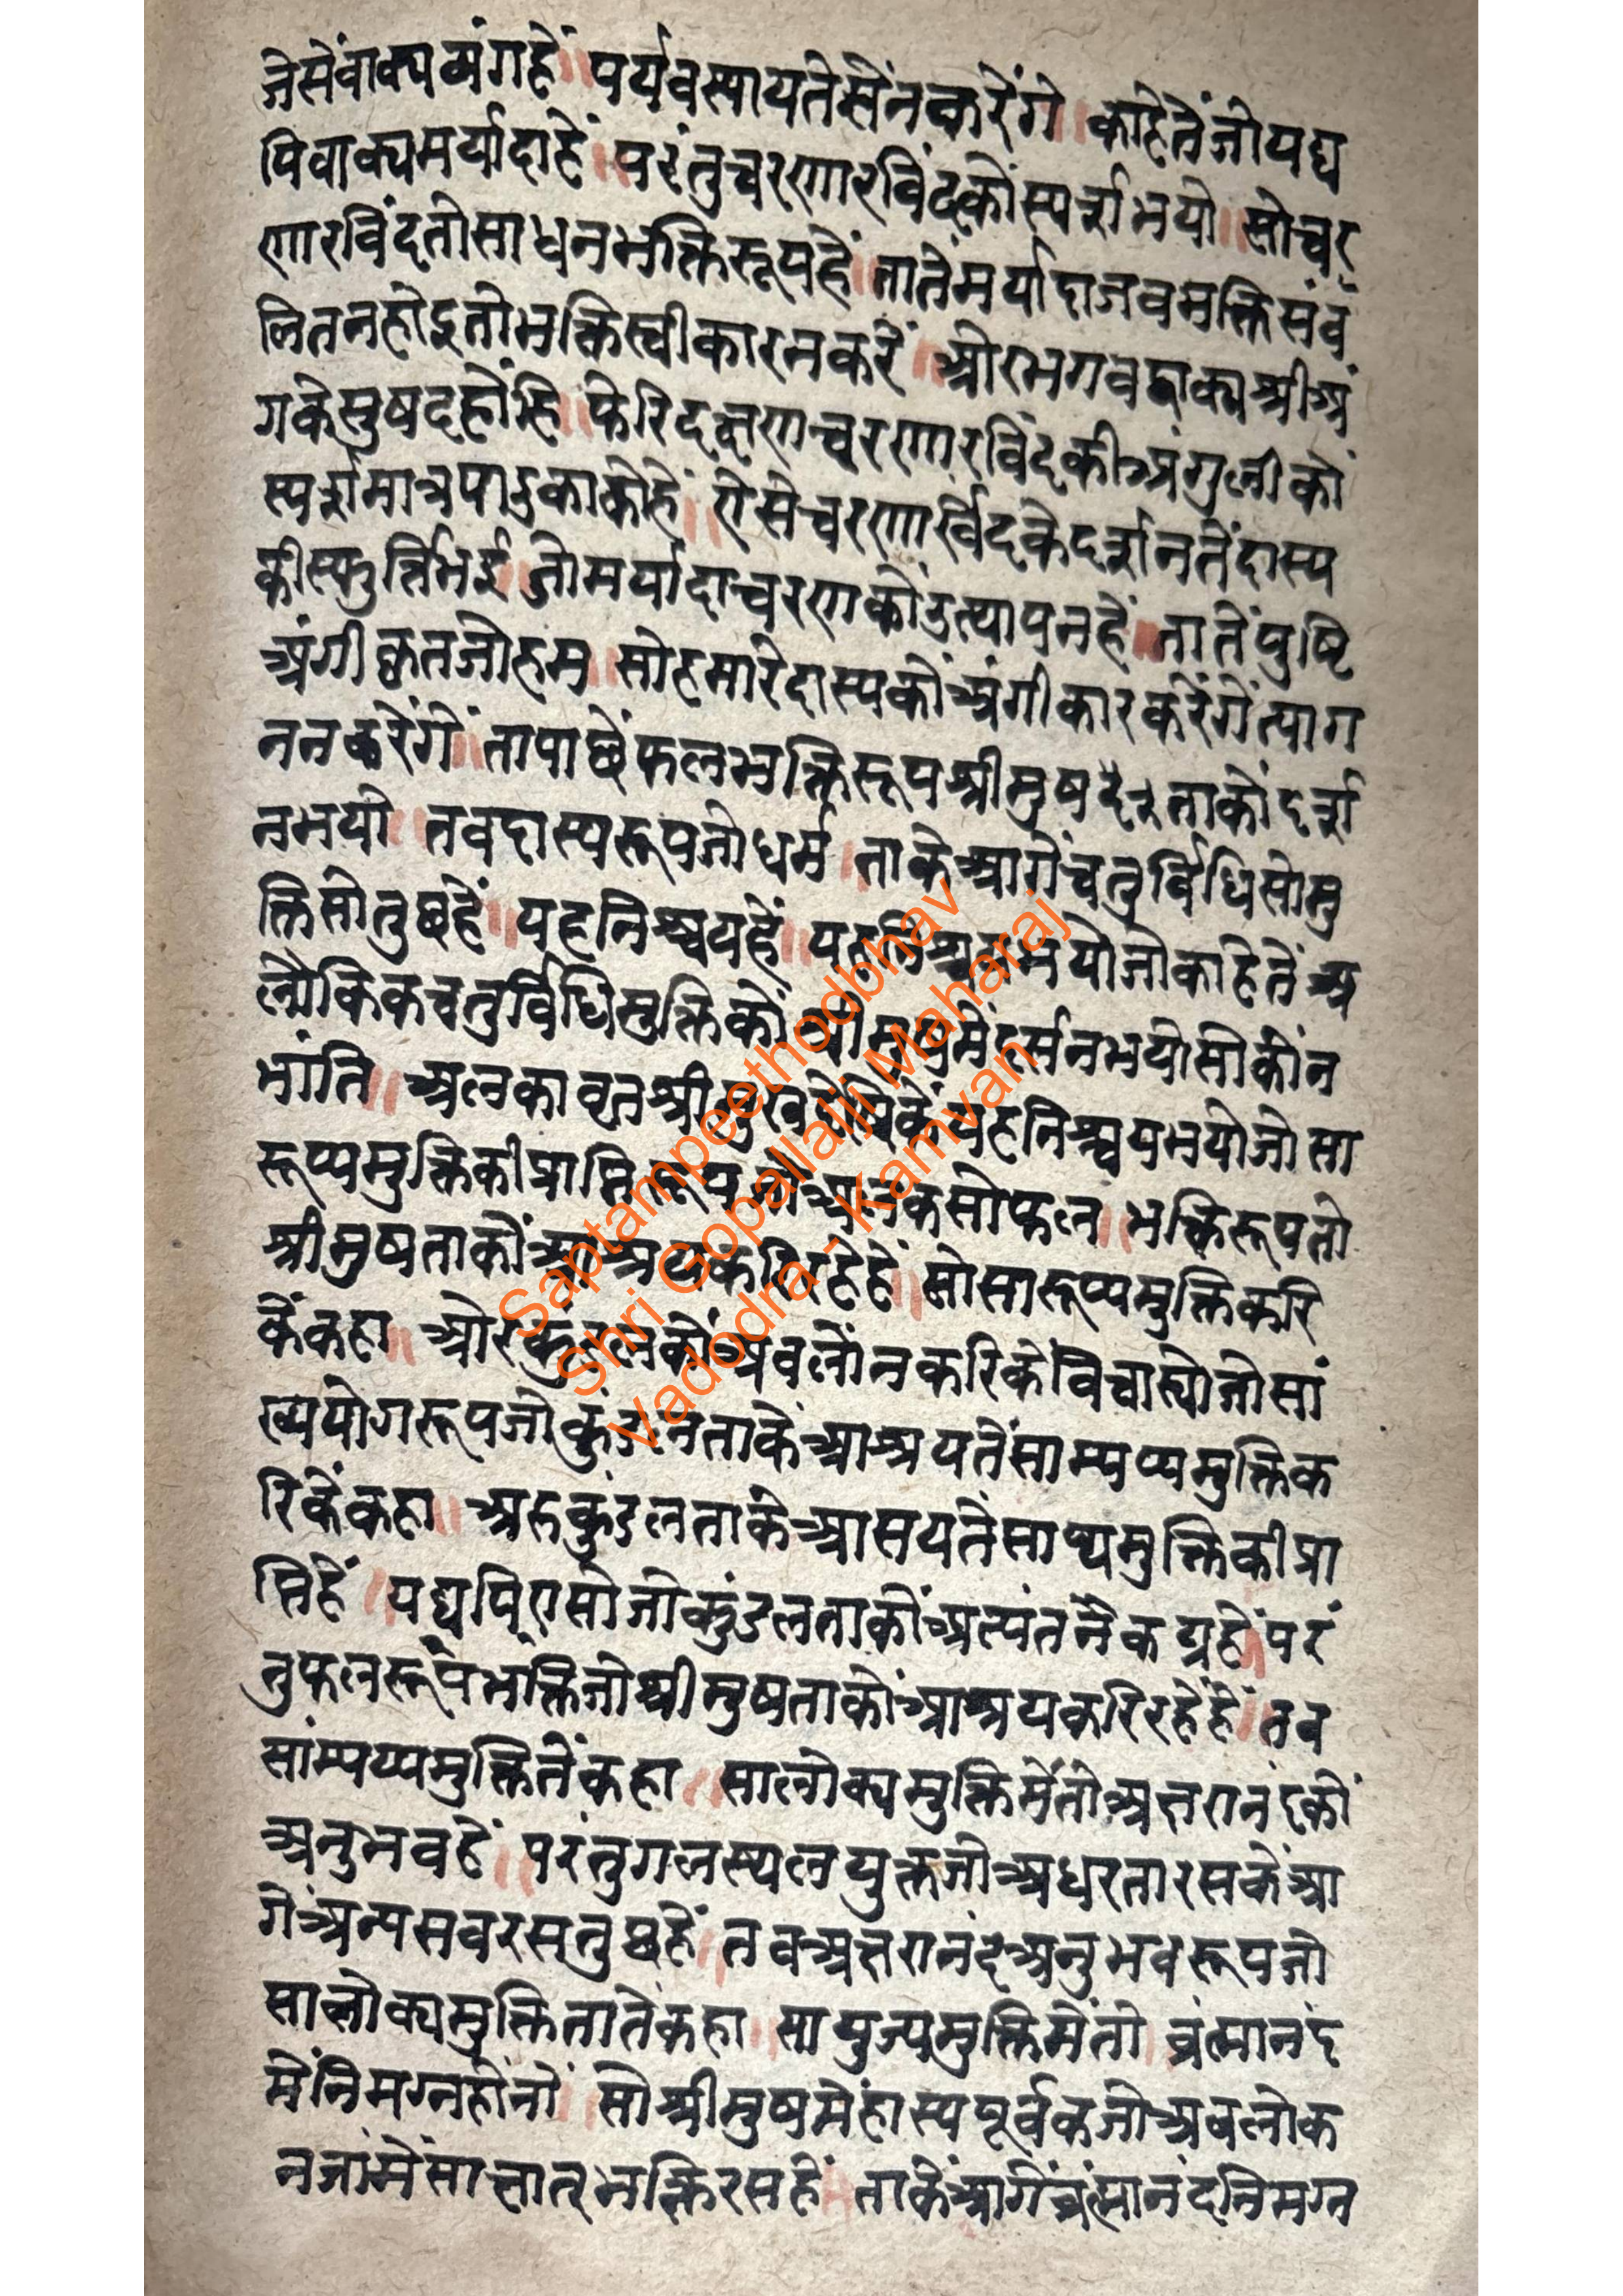 जेसेंवाक्यअंगहें ॥ पर्यवस्यायतेसेंनकरेंगे ॥ काहेतेंजोयद्य
पिवाक्यमर्यादाहें ॥ परंतुचरणारविंदकोंस्पर्शभयो ॥ सोचर
णारविंदतोसाधनभक्तिरूपहें ॥ तातेंमर्यादाजवभक्तिसंव
लितनहोइतोभक्तिस्वीकारनकरें ॥ ओरभगवद्वाक्यश्रीअं
गकेसुषदहोंहि ॥ फेरिदक्षणचरणारविंदकीअंगुलीकों
स्पर्शमात्रपाडुकाकोहें ॥ ऐसेचरणार्विंदकेदर्शनतेंदास्य
कीस्फुर्त्तिभई ॥ जोमर्यादाचरणकोंउत्थापनहें ॥ तातेंपुष्टि
अंगीकृतजोहम ॥ सोहमारेदास्यकोंअंगीकारकरेंगेंत्याग
ननकरेंगें ॥ तापाछेंफलभक्तिरूपश्रीमुष ताकोंदर्श
नभयो ॥ तवदास्यरूपजोधर्म । ताकेआगेंचतुर्विधिसोमु
क्तिसोतुछहें ॥ यहनिश्चयहें ॥ भयोजोकाहेतेंअ
लौकिकचतुर्विधिमुक्तिकोंश्रीमुषमेंदर्सनभयोसोकोंन
भांति ॥ अलकावृतश्रीमुखदेषिकेंयहनिश्चयभयोजोसा
रूप्यमुक्तिकीप्राप्तिरूपजोअलकसोफल ॥ भक्तिरूपजो
श्रीमुषताकोंआश्रयकरिरहेहें ॥ सोसारूप्यमुक्तिकरि
केंकहा ॥ ओरकुंडलकोंअवलोंनकरिकेंविचास्योजोसां
ख्ययोगरूपजोकुंडलताकेंआश्रयतेंसाम्यप्यमुक्तिक
रिकेंकहा ॥ अरुकुंडलताकेआसयतेंसाप्यमुक्तिकीप्रा
प्तिहें ॥ यद्यपिएसोजोकुंडलताकोंअत्यंतनैकग्रहें ॥ परं
तुफलरूपभक्तिजोश्रीमुषताकोंआश्रयकरिरहेंहें ॥ तव
सांम्यप्यमुक्तितेंकहा ॥ सालोक्यमुक्तिमेंतोअक्षरानंदकों
अनुभवहें ॥ परंतुगलस्थलयुक्तजोअधरतारसकेंआ
गेंअन्यसवरसतुछहें ॥ तवअक्षरानंदअनुभवरूपजो
सालोक्यमुक्तितातेंकहा ॥ सायुज्यमुक्तिमेंतो ॥ व्रंह्मानंद
मेंनिमग्नहोंनों ॥ सोश्रीमुषमेंहास्यपूर्वकजोअवलोक
नजामेंसाक्षात्भक्तिरसहें ॥ ताकेंआगेंव्रंह्मानंदनिमग्न
Saptampeethodbhav
Shri Gopallalji Maharaj
Vadodra - Kamvan